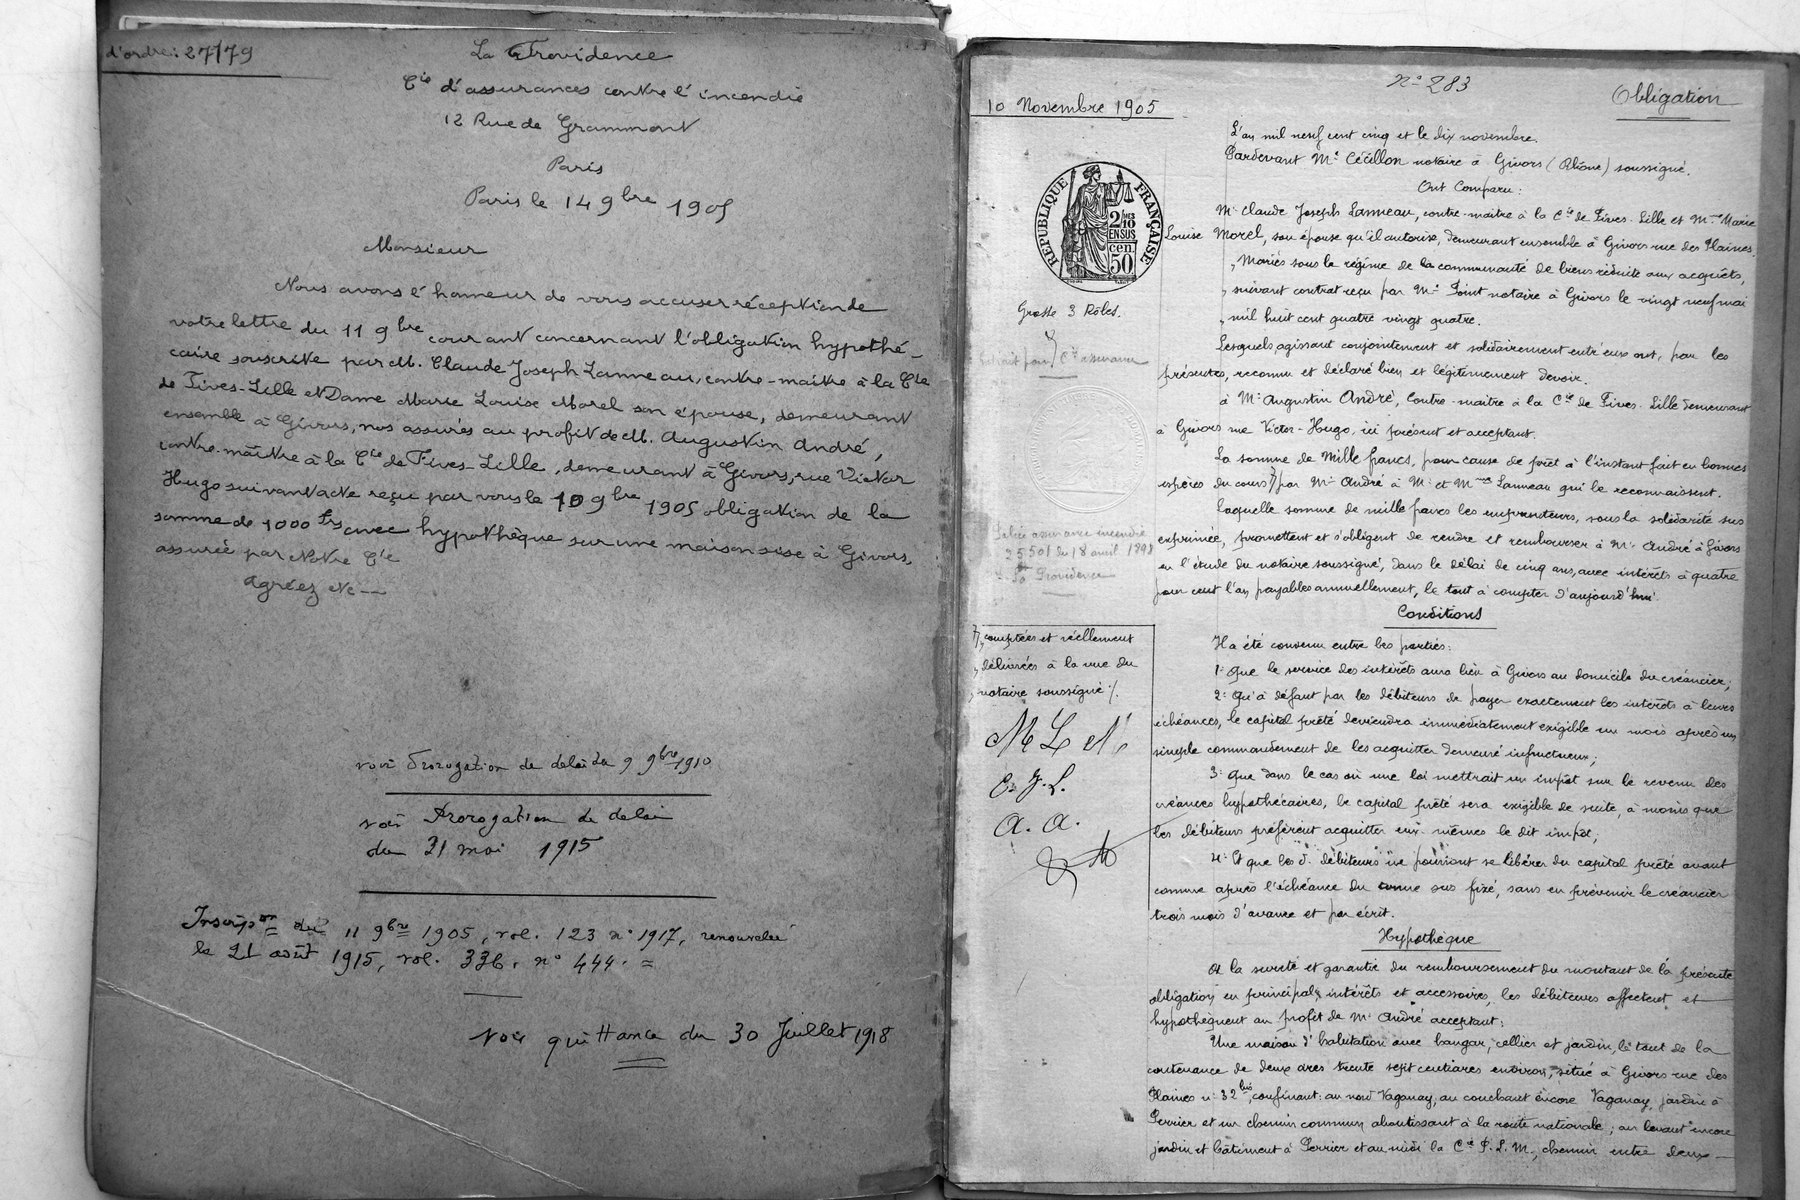 d'ordre: 27179
La Providence
Cie d'assurances contre l'incendie
12 Rue de Grammont
Paris
Paris le 14 9bre 1905
Monsieur
Nous avons l'honneur de vous accuser réception de
votre lettre du 11 9bre courant concernant l'obligation hypothé-
caire souscrite par M. Claude Joseph Lanneau, contre-maître à la Cie
de Fives-Lille et Dame Marie Louise Morel son épouse, demeurant
ensemble à Givors, nos assurés au profit de M. Augustin André,
contre-maître à la Cie de Fives-Lille, demeurant à Givors, rue Victor
Hugo suivant acte reçu par vous le 10 9bre 1905 obligation de la
somme de 1000 frs avec hypothèque sur une maison sise à Givors,
assurée par Notre Cie
Agréez etc —
voir Prorogation de délai du 9 9bre 1910
voir Prorogation de délai
du 31 mai 1915
Inscripon du 11 9bre 1905, vol. 123 n° 1917, renouvelée
le 21 août 1915, vol. 336, n° 444. =
Voir quittance du 30 Juillet 1918
N° 283
Obligation
10 Novembre 1905
RÉPUBLIQUE FRANÇAISE
2/10 EN SUS
cen 50
Grosse 3 Rôles.
Extrait pour Cie assurance
Police assurance incendie
25501 du 18 avril 1898
La Providence
comptées et réellement
délivrées à la vue du
notaire soussigné /.
M L M
C. J. L.
A. A.
L'an mil neuf cent cinq et le dix novembre.
Pardevant Me Cécillon notaire à Givors (Rhône) soussigné.
Ont Comparu:
Mr Claude Joseph Lanneau, contre-maître à la Cie de Fives-Lille et Mme Marie
Louise Morel, son épouse qu'il autorise, demeurant ensemble à Givors rue des Plaines.
„ Mariés sous le régime de la communauté de biens réduite aux acquêts,
„ suivant contrat reçu par Me Point notaire à Givors le vingt neuf mai
„ mil huit cent quatre vingt quatre.
Lesquels agissant conjointement et solidairement entre eux ont, par les
présentes, reconnu et déclaré bien et légitimement devoir.
à Mr Augustin André, Contre-maître à la Cie de Fives-Lille demeurant
à Givors rue Victor-Hugo, ici présent et acceptant.
La somme de Mille francs, pour cause de prêt à l'instant fait en bonnes
espèces du cours par Mr André à Mr et Mme Lanneau qui le reconnaissent.
Laquelle somme de mille francs les emprunteurs, sous la solidarité sus
exprimée, promettent et s'obligent de rendre et rembourser à Mr André à Givors
en l'étude du notaire soussigné, dans le délai de cinq ans, avec intérêts à quatre
pour cent l'an payables annuellement, le tout à compter d'aujourd'hui.
Conditions
Il a été convenu entre les parties:
1° Que le service des intérêts aura lieu à Givors au domicile du créancier;
2° Qu'à défaut par les débiteurs de payer exactement les intérêts à leurs
échéances, le capital prêté deviendra immédiatement exigible un mois après un
simple commandement de les acquitter demeuré infructueux;
3° Que dans le cas où une loi mettrait un impôt sur le revenu des
créances hypothécaires, le capital prêté sera exigible de suite, à moins que
les débiteurs préfèrent acquitter eux-mêmes le dit impôt;
4° Et que les d. débiteurs ne pourront se libérer du capital prêté avant
comme après l'échéance du terme sus fixé, sans en prévenir le créancier
trois mois d'avance et par écrit.
Hypothèque
A la sureté et garantie du remboursement du montant de la présente
obligation en principal, intérêts et accessoires, les débiteurs affectent et
hypothèquent au profit de Mr André acceptant;
Une maison d'habitation avec hangar, cellier et jardin, le tout de la
contenance de deux ares trente sept centiares environ, situé à Givors rue des
Plaines n° 32 bis, confinant: au nord Vaganay, au couchant encore Vaganay, jardin à
Perrier et un chemin commun aboutissant à la route nationale; au levant encore
jardin et bâtiment à Perrier et au midi la Cie P.L.M., chemin entre deux —